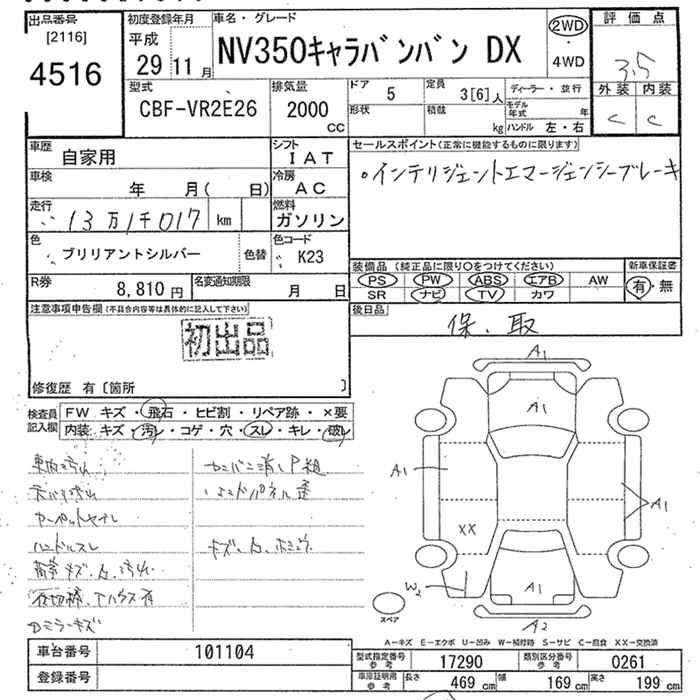 出品番号
[2116]
4516
初度登録年月
平成
29 11 月
車名・グレード
NV350キャラバンバン DX
2WD
4WD
評価点
3.5
外装 内装
C C
型式
CBF-VR2E26
排気量
2000
CC
ドア
5
形状
定員
3[6]人
積載
kg
ディーラー・並行
モデル年式 年
ハンドル 左・右
車歴
自家用
シフト
IAT
車検
年 月( 日)
冷房
AC
走行
13万1千017 km
燃料
ガソリン
色
ブリリアントシルバー
色替
色コード
K23
R券
8,810 円
名変通知期限
月 日
セールスポイント(正常に機能するものに限ります)
。インテリジェントエマージェンシーブレーキ
装備品(純正品に限り○をつけてください)
PS PW ABS エアB AW
SR ナビ TV カワ
新車保証書
有・無
後日品
保、取
注意事項申告欄(不具合内容等は具体的に記入して下さい)
初出品
修復歴 有〔箇所 〕
検査員記入欄
FW キズ・飛石・ヒビ割・リペア跡・×要
内装 キズ・汚レ・コゲ・穴・スレ・キレ・破レ
ハンドルスレ
Dミラーキズ
A1
A1
A1
A1
XX
W2
A1
A2
スペア
A-キズ E-エクボ U-凹み W-補修跡 S-サビ C-腐食 XX-交換済
車台番号
101104
登録番号
型式指定番号 参考
17290
類別区分番号 参考
0261
車庫証明書 参考
長さ 469 cm 幅 169 cm 高さ 199 cm